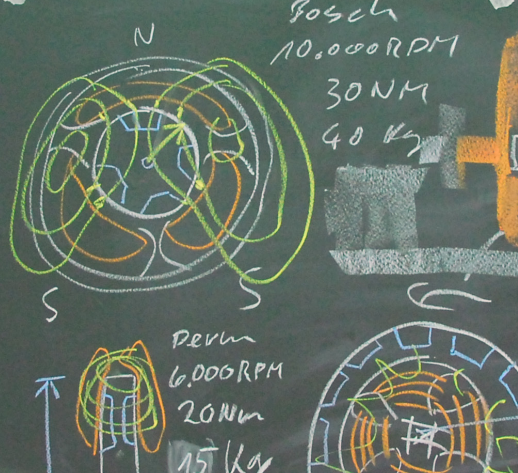 Bosch
N
10.000RPM
30NM
40 Kg
S
S
Perm
6.000RPM
20Nm
15 Kg